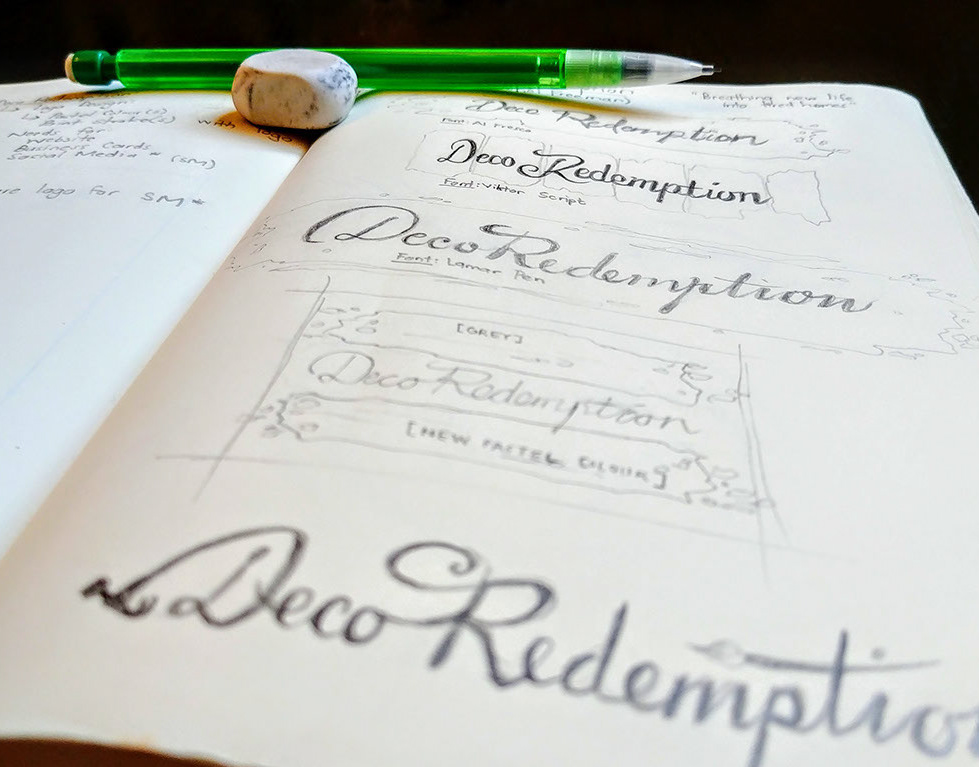 Needs for
Website
Business Cards
Social Media * (SM)
logo for SM *
with logo
"Breathing new life
into tired homes"
Deco Redemption
Deco Redemption
Font: Viktor Script
Deco Redemption
Font: Lamar Pen
[GREY]
Deco Redemption
[NEW PASTEL COLOUR]
Deco Redemptio